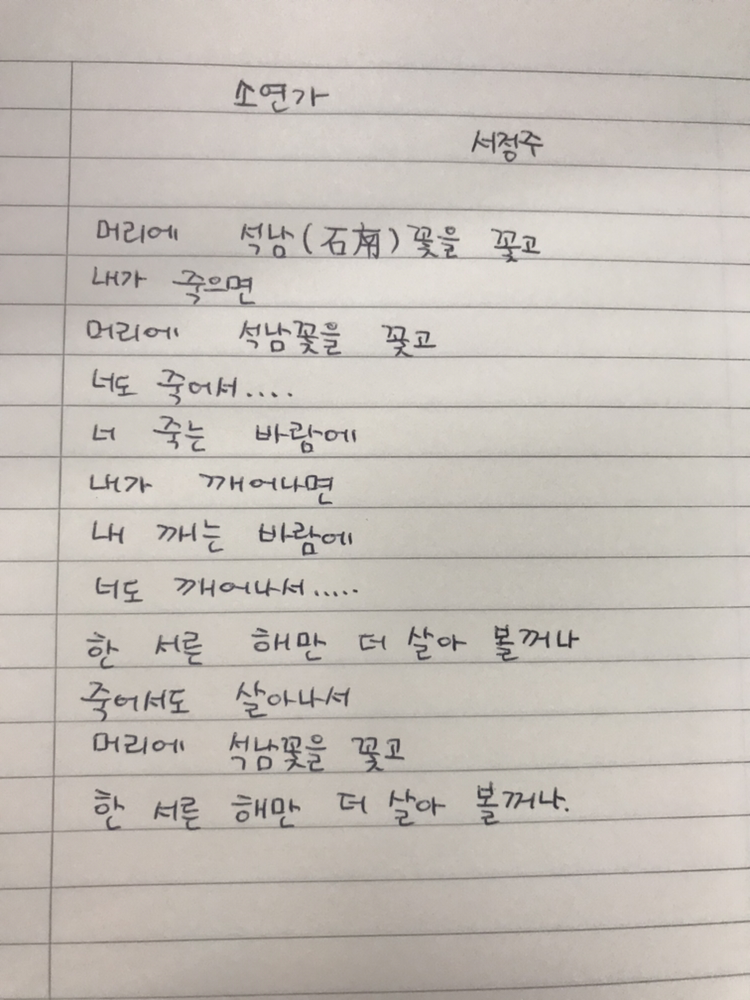 소연가
서정주
머리에 석남(石南)꽃을 꽂고
내가 죽으면
머리에 석남꽃을 꽂고
너도 죽어서....
너 죽는 바람에
내가 깨어나면
내 깨는 바람에
너도 깨어나서.....
한 서른 해만 더 살아 볼꺼나
죽어서도 살아나서
머리에 석남꽃을 꽂고
한 서른 해만 더 살아 볼꺼나.